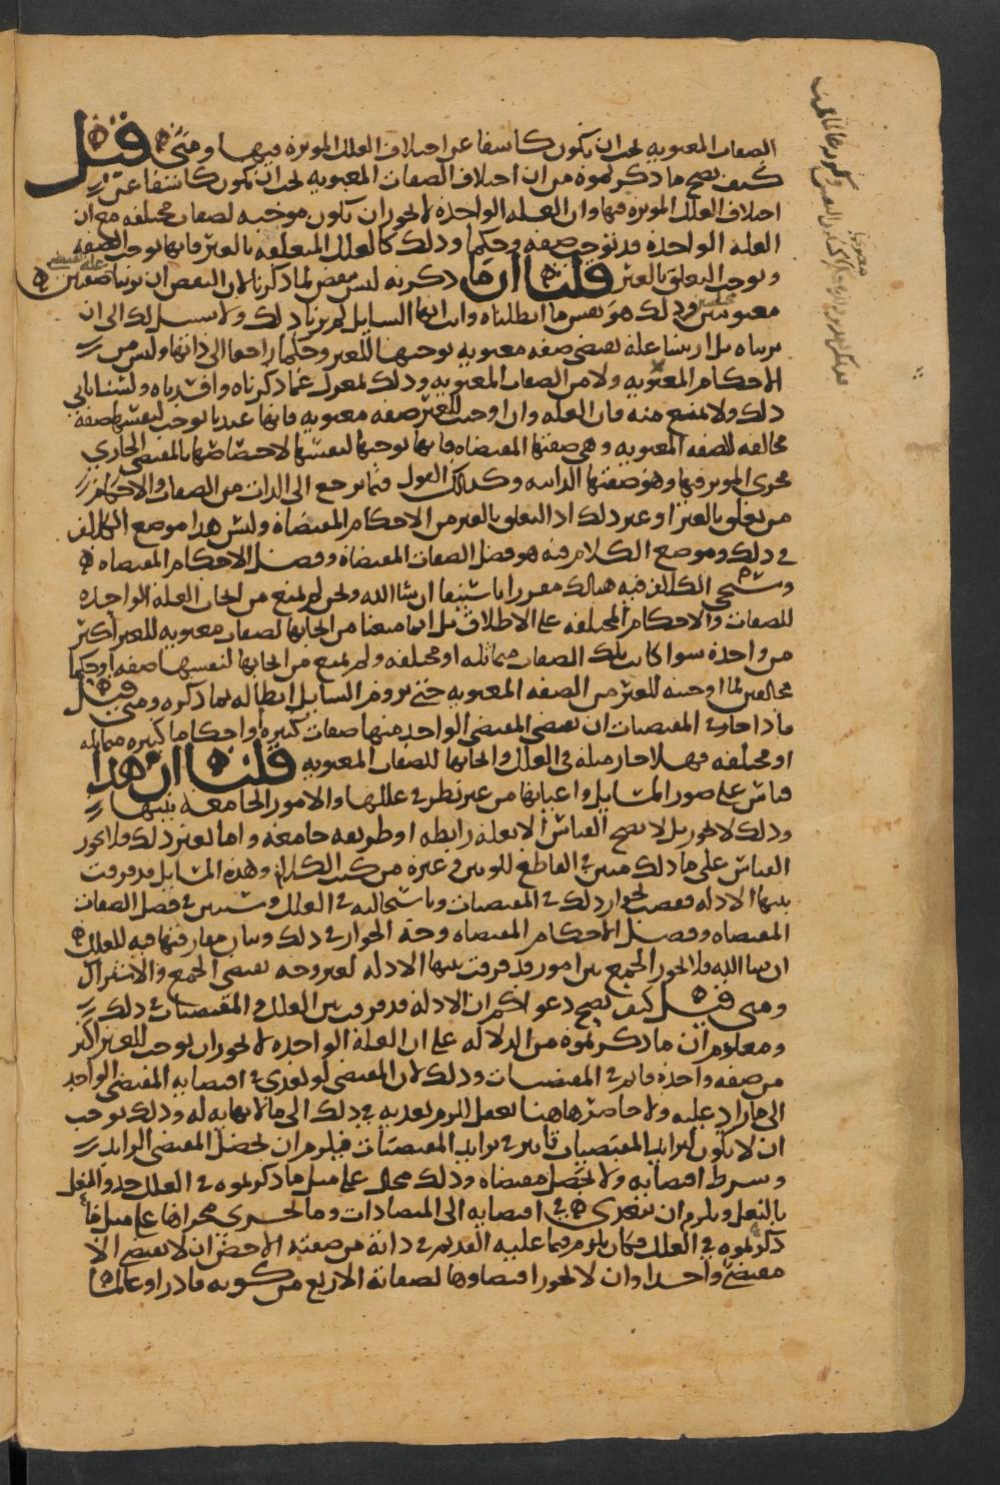 الصفات المعنويه يجب ان يكون كاشفا عن اختلاف العلل الموثره فيها ومتى قيل
كيف يصح ما ذكرتموه من ان اختلاف الصفات المعنويه يجب ان يكون كاشفا عن
اختلاف العلل الموثره فيها وان العله الواحده لا يجوز ان يكون موجبه لصفات مختلفه مع ان
العله الواحده قد توجب صفه وحكما وذلك كالعلل المتعلقه بالغير فانها توجب الصفه
وتوجب التعلق بالغير قلنا ان ما ذكرته ليس بنقض لما ذكرنا لان النقض ان تريناصفتين
معنويتين وذلك هو نفس ما ابطلناه وانت ايها السايل لم ترنا ذلك ولا سبيل لك الى ان
تريناه بل اريتنا علة تقتضي صفه معنويه توجبها للغير وحكما راجعا الى ذاتها وليس من
الاحكام المعنويه ولا من الصفات المعنويه وذلك بمعزل عما ذكرناه وافسدناه ولسنا نابى
ذلك ولا نمنع منه فان العله وان اوجبت للغير صفه معنويه فانها عندنا توجب لنفسها صفة
مخالفه للصفه المعنويه وهي صفتها المقتضاه فانها توجبها لنفسها لاختصاصها بالمقتضي الجاري
مجرى الموثر فيها وهو صفتها الذاتيه وكذلك القول فيما يرجع الى الذات من الصفات والاحكام
من تعلق بالغير او غير ذلك اذ التعلق بالغير من الاحكام المقتضاة وليس هذا موضع الكلام
في ذلك وموضع الكلام فيه هو فصل الصفات المقتضاة وفصل الاحكام المقتضاه
وسيجي الكلام فيه هنالك مقررا باستيفا ان شا الله ونحن لم نمنع من ايجاب العله الواحده
للصفات والاحكام المختلفه على الاطلاق بل انما منعنا من ايجابها لصفات معنويه للغير اكثر
من واحدة سوا كانت تلك الصفات متماثله او مختلفه ولم نمنع من ايجابها لنفسها صفه او حكما
مخالفين لما اوجبته للغير من الصفه المعنويه حتى يروم السايل ابطاله بما ذكره ومتى قيل
ماذا جاز في المقتضيات ان يقتضي المقتضي الواحد منها صفات كثيره واحكاما كثيره متماثله
او مختلفه فهلا جاز مثله في العلل وايجابها للصفات المعنويه قلنا ان هذا
قياس على صور المسايل واعيانها من غير نظر في عللها والامور الجامعه بينها
وذلك لا يجوز بل لا يصح القياس الا بعلة رابطه او طريقه جامعه واما بغير ذلك فلا يجوز
القياس على ما ذلك مبين في القاطع للوبين وغيره من كتب الكلام وهذه المسايل قد فرقت
بينها الادله فقضت بجواز ذلك في المقتضيات وباستحالته في العلل وسنبين في فصل الصفات
المقتضاه وفصل الاحكام المقتضاه وجه الجواز في ذلك وبيان مفارقتها فيه للعلل
ان شا الله ولا يجوز الجمع بين امور قد فرقت بينها الادله لغير وجه يقتضي الجمع والاشتراك
ومتى قيل كيف يصح دعواكم ان الادلة قد فرقت بين العلل والمقتضيات في ذلك
ومعلوم ان ما ذكرتموه من الدلاله على ان العلة الواحده لا يجوز ان يوجب للغير اكثر
من صفه واحدة قايم في المقتضيات وذلك لان المقتضي لو تعدى في اقتضايه المقتضى الواحد
الى ما زاد عليه ولا حاصر هاهنا يعقل للزم تعديه في ذلك الى ما لا نهايه له وذلك يوجب
ان لا يكون لتزايد المقتضيات تاثير في تزايد المقتضيات فيلزم ان يحصل المقتضي الزايد
وشرط اقتضايه ولا يحصل مقتضاه وذلك محال على مثل ما ذكرتموه في العلل حذو النعل
بالنعل ويلزم ان يتعدى في اقتضايه الى المتضادات وما يجري مجراها على مثل ما
ذكرتموه في العلل فكان يلزم فيما عليه القديم في ذاته من صفته الاخص ان لا يقتضي الا
مقتضى واحدا وان لا يجوز اقتضاوها لصفاته الاربع من كونه قادرا وعالما